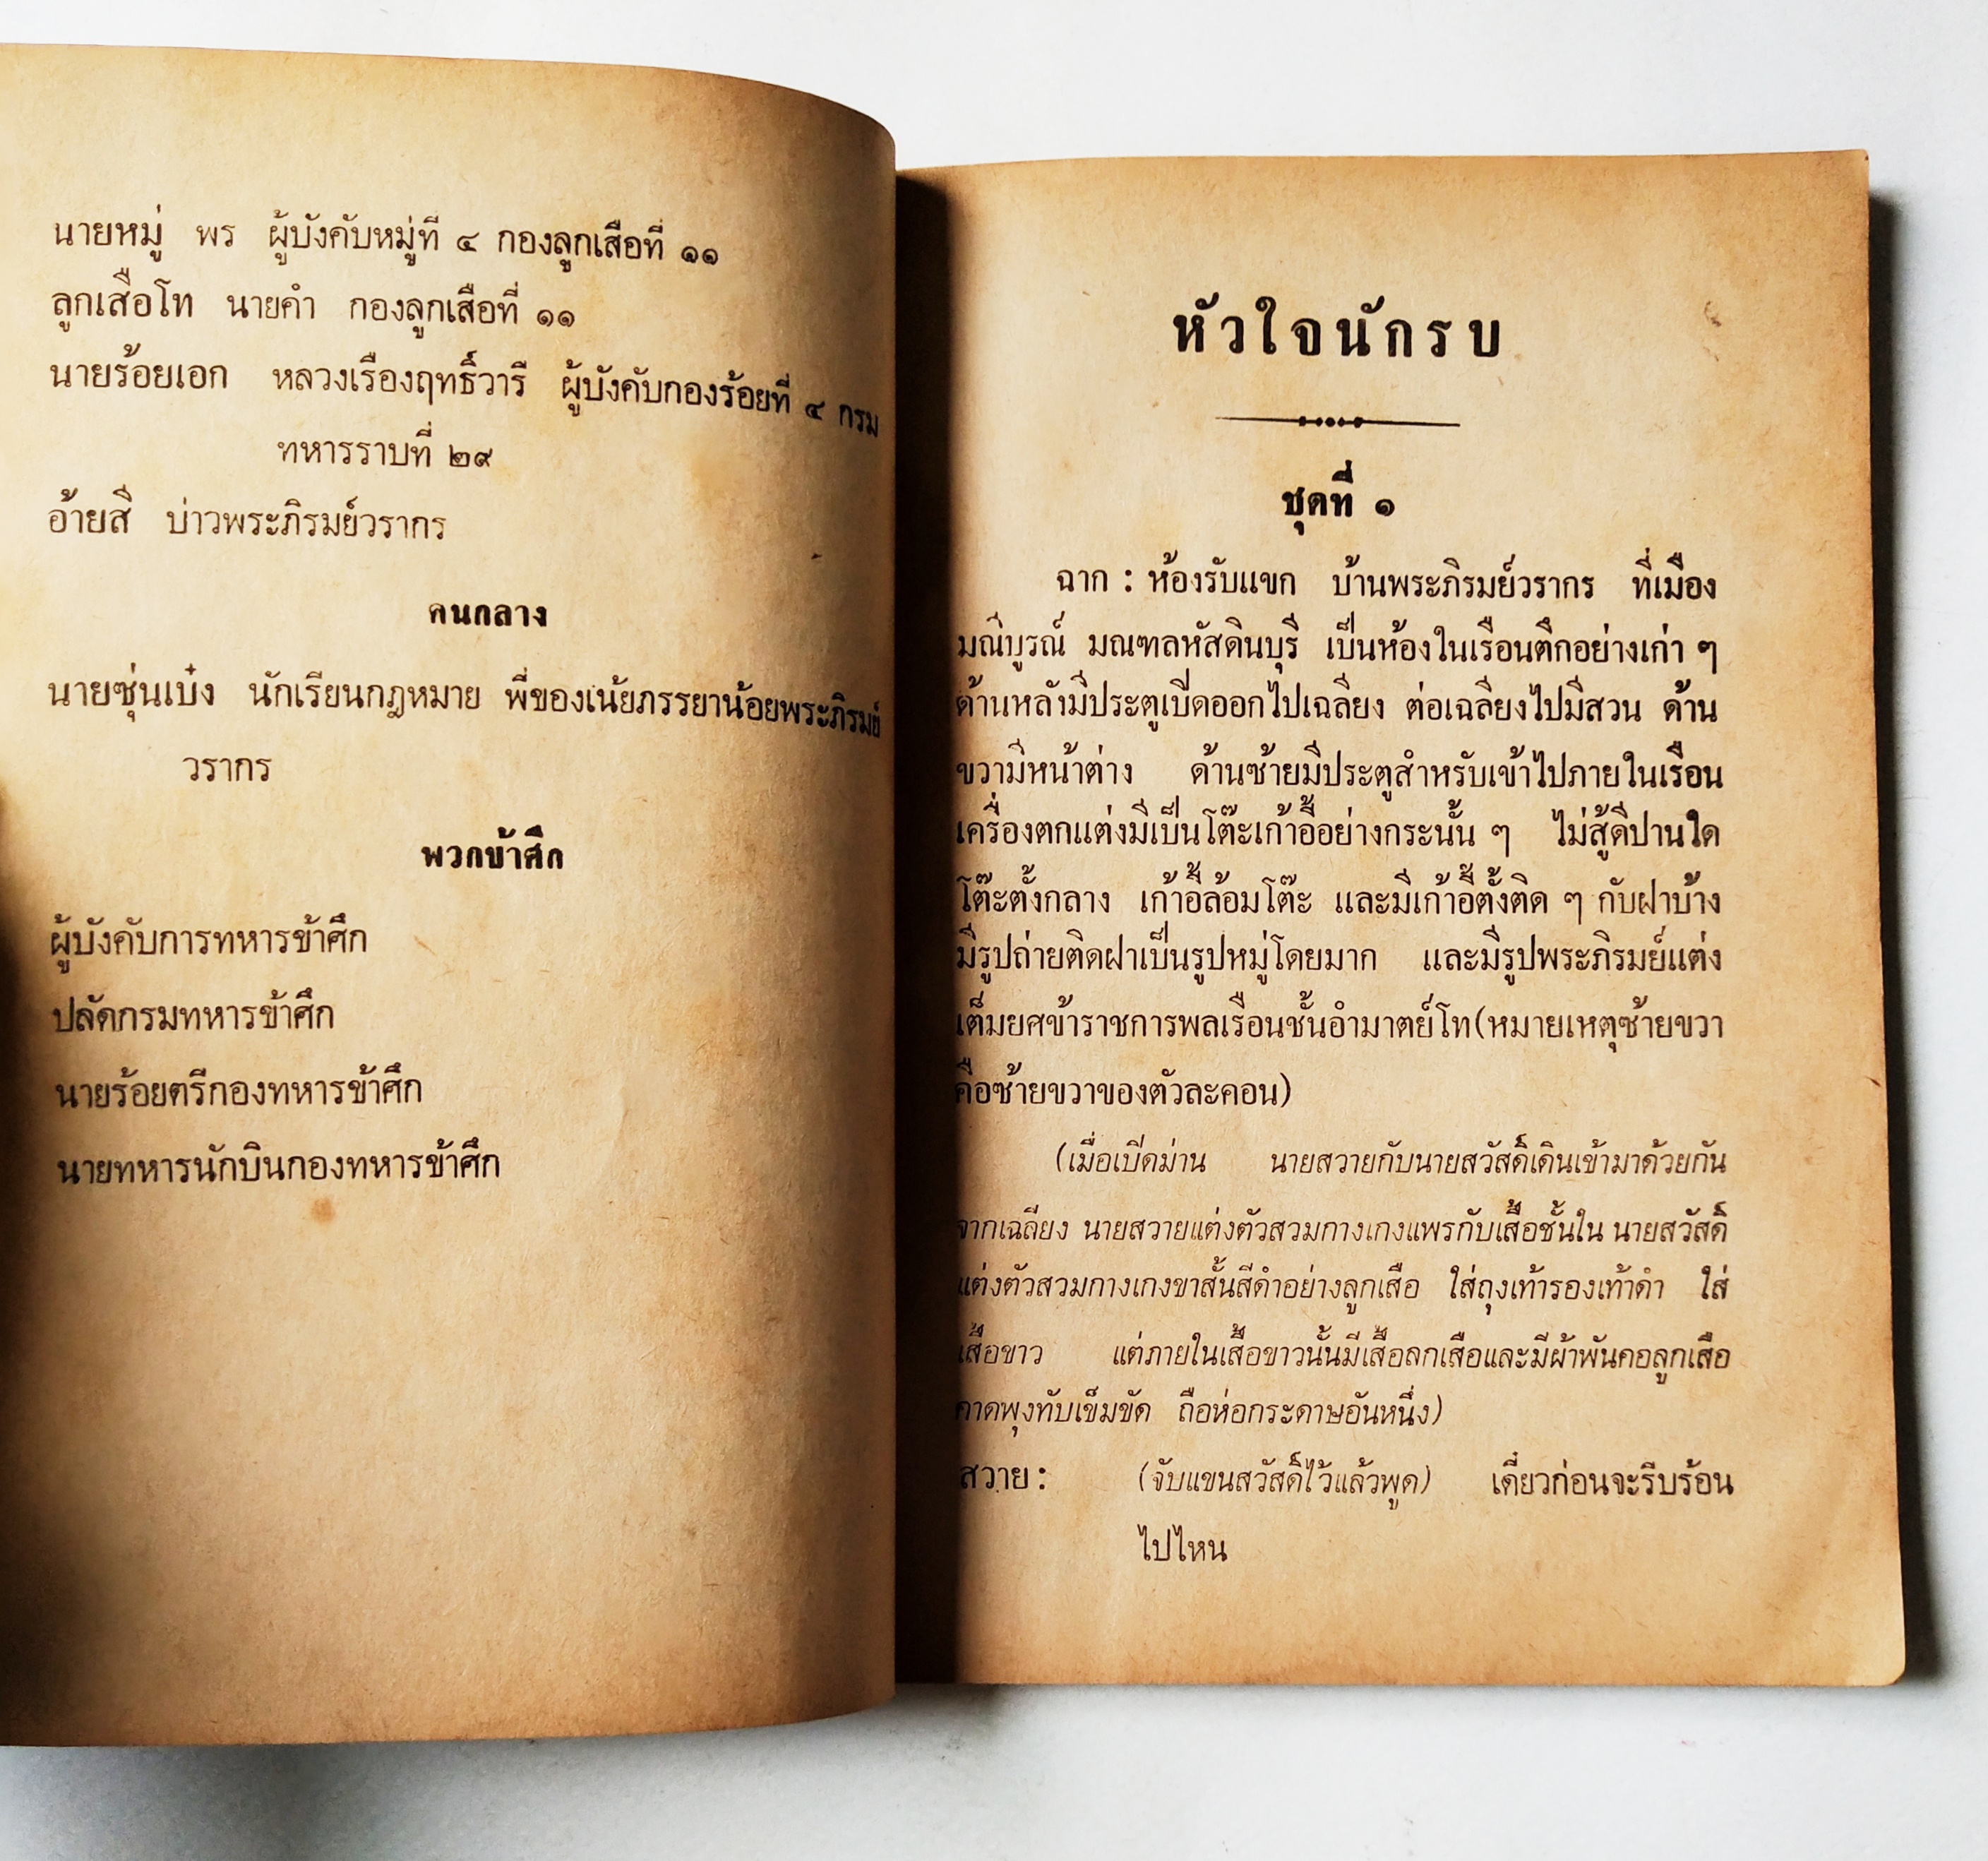 นายหมู่ พร ผู้บังคับหมู่ที่ ๔ กองลูกเสือที่ ๑๑
ลูกเสือโท นายคำ กองลูกเสือที่ ๑๑
นายร้อยเอก หลวงเรืองฤทธิ์วารี ผู้บังคับกองร้อยที่ ๔ กรม
ทหารราบที่ ๒๙
อ้ายสี บ่าวพระภิรมย์วรากร
คนกลาง
นายซุ่นเบ๋ง นักเรียนกฎหมาย พี่ของเน้ยภรรยาน้อยพระภิรมย์
วรากร
พวกข้าศึก
ผู้บังคับการทหารข้าศึก
ปลัดกรมทหารข้าศึก
นายร้อยตรีกองทหารข้าศึก
นายทหารนักบินกองทหารข้าศึก
หัวใจนักรบ
ชุดที่ ๑
ฉาก : ห้องรับแขก บ้านพระภิรมย์วรากร ที่เมือง
มณีบูรณ์ มณฑลหัสดินบุรี เป็นห้องในเรือนตึกอย่างเก่า ๆ
ด้านหลังมีประตูเปิดออกไปเฉลียง ต่อเฉลียงไปมีสวน ด้าน
ขวามีหน้าต่าง ด้านซ้ายมีประตูสำหรับเข้าไปภายในเรือน
เครื่องตกแต่งมีเป็นโต๊ะเก้าอี้อย่างกระนั้น ๆ ไม่สู้ดีปานใด
โต๊ะตั้งกลาง เก้าอี้ล้อมโต๊ะ และมีเก้าอี้ตั้งติด ๆ กับฝาบ้าง
มีรูปถ่ายติดฝาเป็นรูปหมู่โดยมาก และมีรูปพระภิรมย์แต่ง
เต็มยศข้าราชการพลเรือนชั้นอำมาตย์โท(หมายเหตุซ้ายขวา
คือซ้ายขวาของตัวละคอน)
(เมื่อเปิดม่าน นายสวายกับนายสวัสดิ์เดินเข้ามาด้วยกัน
จากเฉลียง นายสวายแต่งตัวสวมกางเกงแพรกับเสื้อชั้นใน นายสวัสดิ์
แต่งตัวสวมกางเกงขาสั้นสีดำอย่างลูกเสือ ใส่ถุงเท้ารองเท้าดำ ใส่
เสื้อขาว แต่ภายในเสื้อขาวนั้นมีเสื้อลูกเสือและมีผ้าพันคอลูกเสือ
คาดพุงทับเข็มขัด ถือห่อกระดาษอันหนึ่ง)
สวาย : (จับแขนสวัสดิ์ไว้แล้วพูด) เดี๋ยวก่อนจะรีบร้อน
ไปไหน